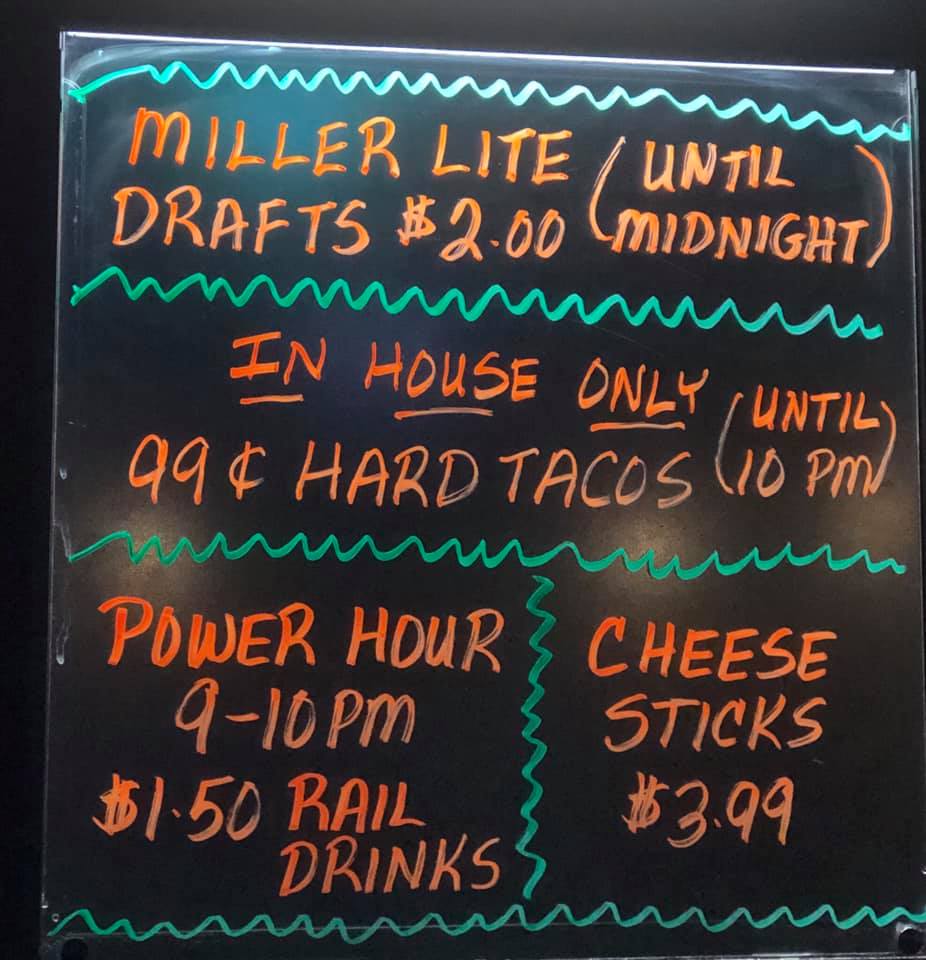 MILLER LITE (UNTIL
DRAFTS $2.00 MIDNIGHT)
IN HOUSE ONLY (UNTIL
99¢ HARD TACOS 10 PM)
POWER HOUR
9-10PM
$1.50 RAIL
DRINKS
CHEESE
STICKS
$3.99